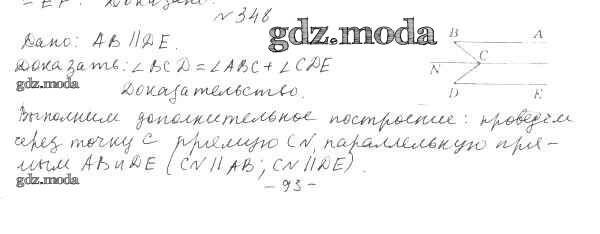 = EF. Доказано.
№ 348
gdz.moda
Дано: AB || DE.
Доказать: ∠BCD = ∠ABC + ∠CDE
gdz.moda
Доказательство.
B A
C
N
D E
Выполним дополнительное построение: проведём
через точку C прямую CN, параллельную пря-
мым AB и DE (CN || AB; CN || DE).
gdz.moda
- 93 -